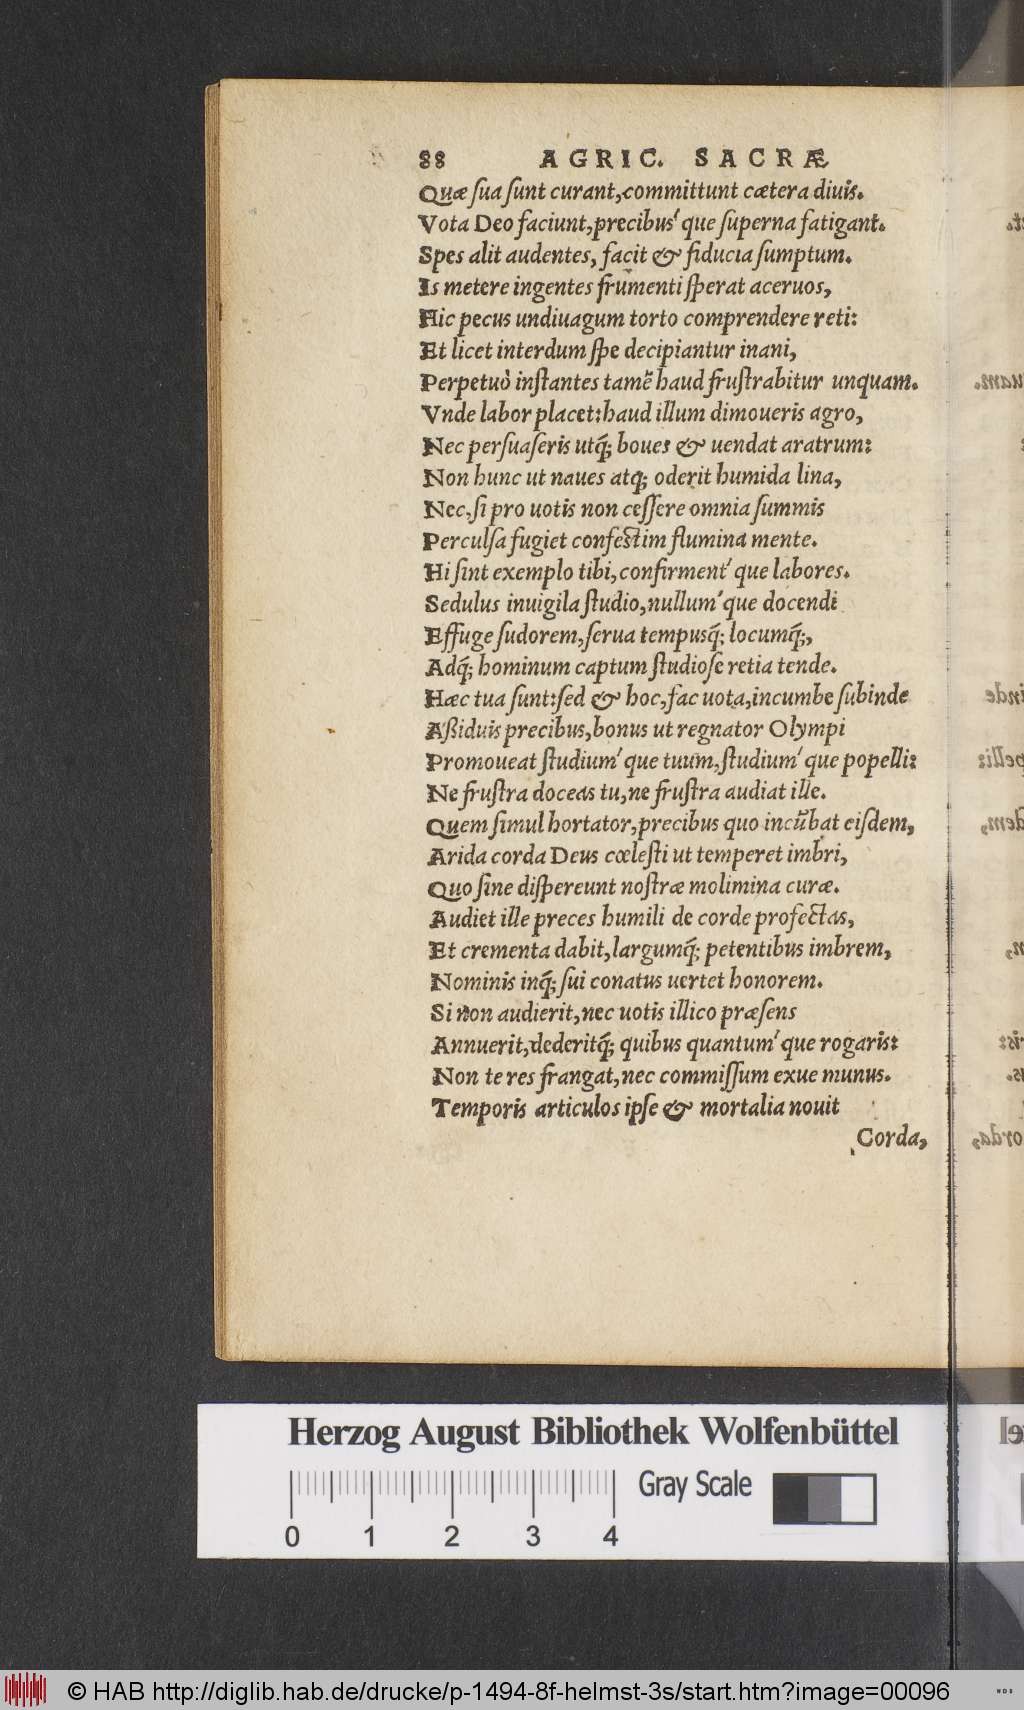 88 AGRIC. SACRÆ
Quæ ſua ſunt curant, committunt cætera diuis.
Vota Deo faciunt, precibus'que ſuperna fatigant.
Spes alit audentes, facit & fiducia ſumptum.
Is metere ingentes frumenti ſperat aceruos,
Hic pecus undiuagum torto comprendere reti:
Et licet interdum ſpe decipiantur inani,
Perpetuò inſtantes tamẽ haud fruſtrabitur unquam.
Vnde labor placet: haud illum dimoueris agro,
Nec perſuaſeris utq́; boues & uendat aratrum:
Non hunc ut naues atq; oderit humida lina,
Nec, ſi pro uotis non ceſſere omnia ſummis
Perculſa fugiet confeſtim flumina mente.
Hi ſint exemplo tibi, confirment'que labores.
Sedulus inuigila ſtudio, nullum'que docendi
Effuge ſudorem, ſerua tempusq́; locumq́;,
Adq́; hominum captum ſtudioſe retia tende.
Hæc tua ſunt: ſed & hoc, fac uota, incumbe ſubinde
Aßiduis precibus, bonus ut regnator Olympi
Promoueat ſtudium'que tuum, ſtudium'que popelli:
Ne fruſtra doceas tu, ne fruſtra audiat ille.
Quem ſimul hortator, precibus quo incũbat eiſdem,
Arida corda Deus cœleſti ut temperet imbri,
Quo ſine diſpereunt noſtræ molimina curæ.
Audiet ille preces humili de corde profectas,
Et crementa dabit, largumq́; petentibus imbrem,
Nominis inq́; ſui conatus uertet honorem.
Si non audierit, nec uotis illico præſens
Annuerit, dederitq́; quibus quantum'que rogaris:
Non te res frangat, nec commiſſum exue munus.
Temporis articulos ipſe & mortalia nouit
Corda,
Herzog August Bibliothek Wolfenbüttel
Gray Scale
0 1 2 3 4
© HAB http://diglib.hab.de/drucke/p-1494-8f-helmst-3s/start.htm?image=00096